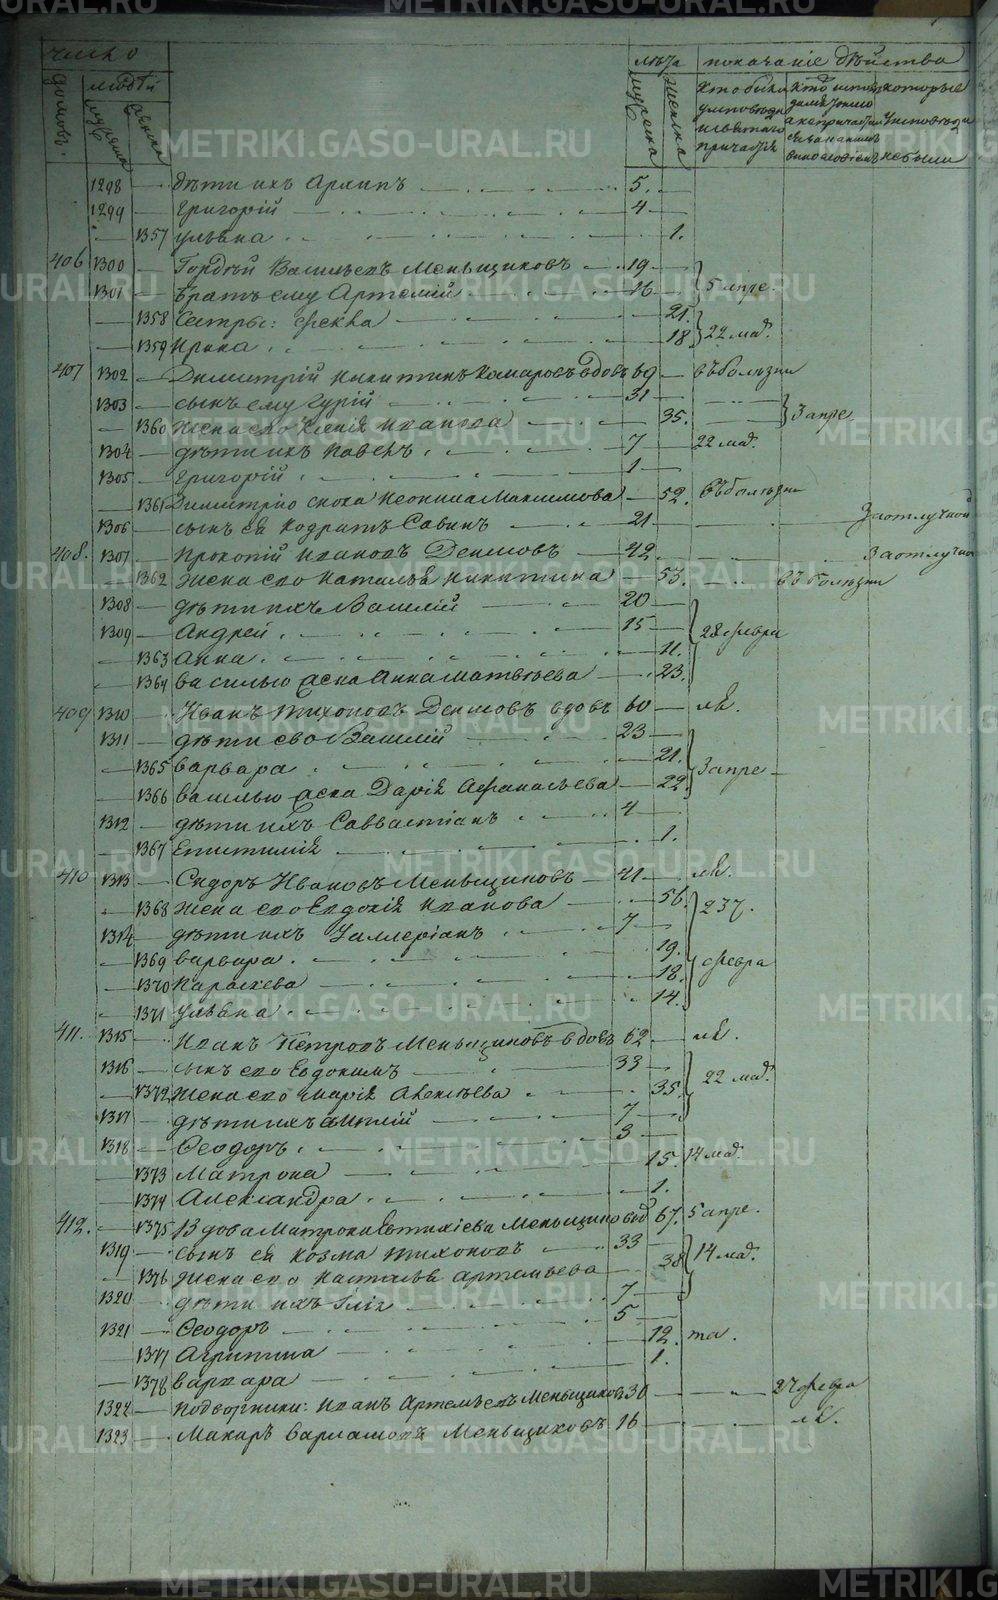 число лѣта показаніе дѣйства
домовъ. людей мужска женска мужска женска
кто были у исповѣди и святаго причастія которые у исповѣди не были
1298 — дѣти ихъ Архипъ 5.
1299 — Григорій 4
— 1357 Ульяна 1.
406 1300 — Гордѣй Васильевъ Меньщиковъ 19
1301 — братъ ему Артемій 16 5 апре.
— 1358 Сестры: Фекла 21.
— 1359 Ирина 18 22 мар.
407 1302 — Димитрій Никитинъ Комаровъ вдовъ 69 въ болѣзни
1303 — сынъ ему Гурій 31
— 1360 жена его Ксенія Иванова 35. 3 апре
1304 — дѣти ихъ Павелъ 7 22 мар.
1305 — Григорій 1
— 1361 Димитрію сноха Неонила Максимова 52. въ болѣзни
1306 — сынъ ея Кодратъ Савинъ 21 За отлучкой
408. 1307 — Прокопій Ивановъ Денисовъ 42 За отлучкой
— 1362 жена его Наталья Никитина 53. въ болѣзни
1308 — дѣти ихъ Василій 20
1309 — Андрей 15 28 февра
— 1363 Анна 11.
— 1364 Василью жена Анна Матвѣева 23.
409 1310 — Иванъ Тихоновъ Денисовъ вдовъ 60
1311 — дѣти его Василій 23
— 1365 Варвара 21. 3 апре
— 1366 Василью жена Дарія Афанасьева 22.
1312 — дѣти ихъ Саввастіанъ 4
— 1367 Епистимія 1.
410 1313 — Сидоръ Ивановъ Меньщиковъ 41
— 1368 жена его Евдокія Иванова 56.
1314 — дѣти ихъ Валлеріанъ 7
— 1369 Варвара 19. февра
— 1370 Параскева 18.
— 1371 Ульяна 14.
411. 1315 — Иванъ Петровъ Меньщиковъ вдовъ 62
1316 — сынъ его Евдокимъ 33 22 мар.
— 1372 жена его Марія Алексѣева 35.
1317 — дѣти ихъ 7
1318 — Ѳеодоръ 3
— 1373 Матрона 15. 14 мар.
— 1374 Александра 1.
412. — 1375 Вдова Матрона Евтихіева Меньщикова 67. 5 апре.
1319 — сынъ ея Козма Тихоновъ 33 14 мар.
— 1376 жена его Наталья Артемьева 38
1320 — дѣти ихъ Илія 7
1321 — Ѳеодоръ 5
— 1377 Агрипина 12. та.
— 1378 Варвара 1.
1322 — подворники: Иванъ Артемьевъ Меньщиковъ 30 27 февра
1323 — Макаръ Варламовъ Меньщиковъ 16
METRIKI.GASO-URAL.RU